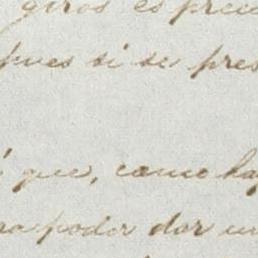 giros es preci
pues si se pres
que, como ha
poder dar un